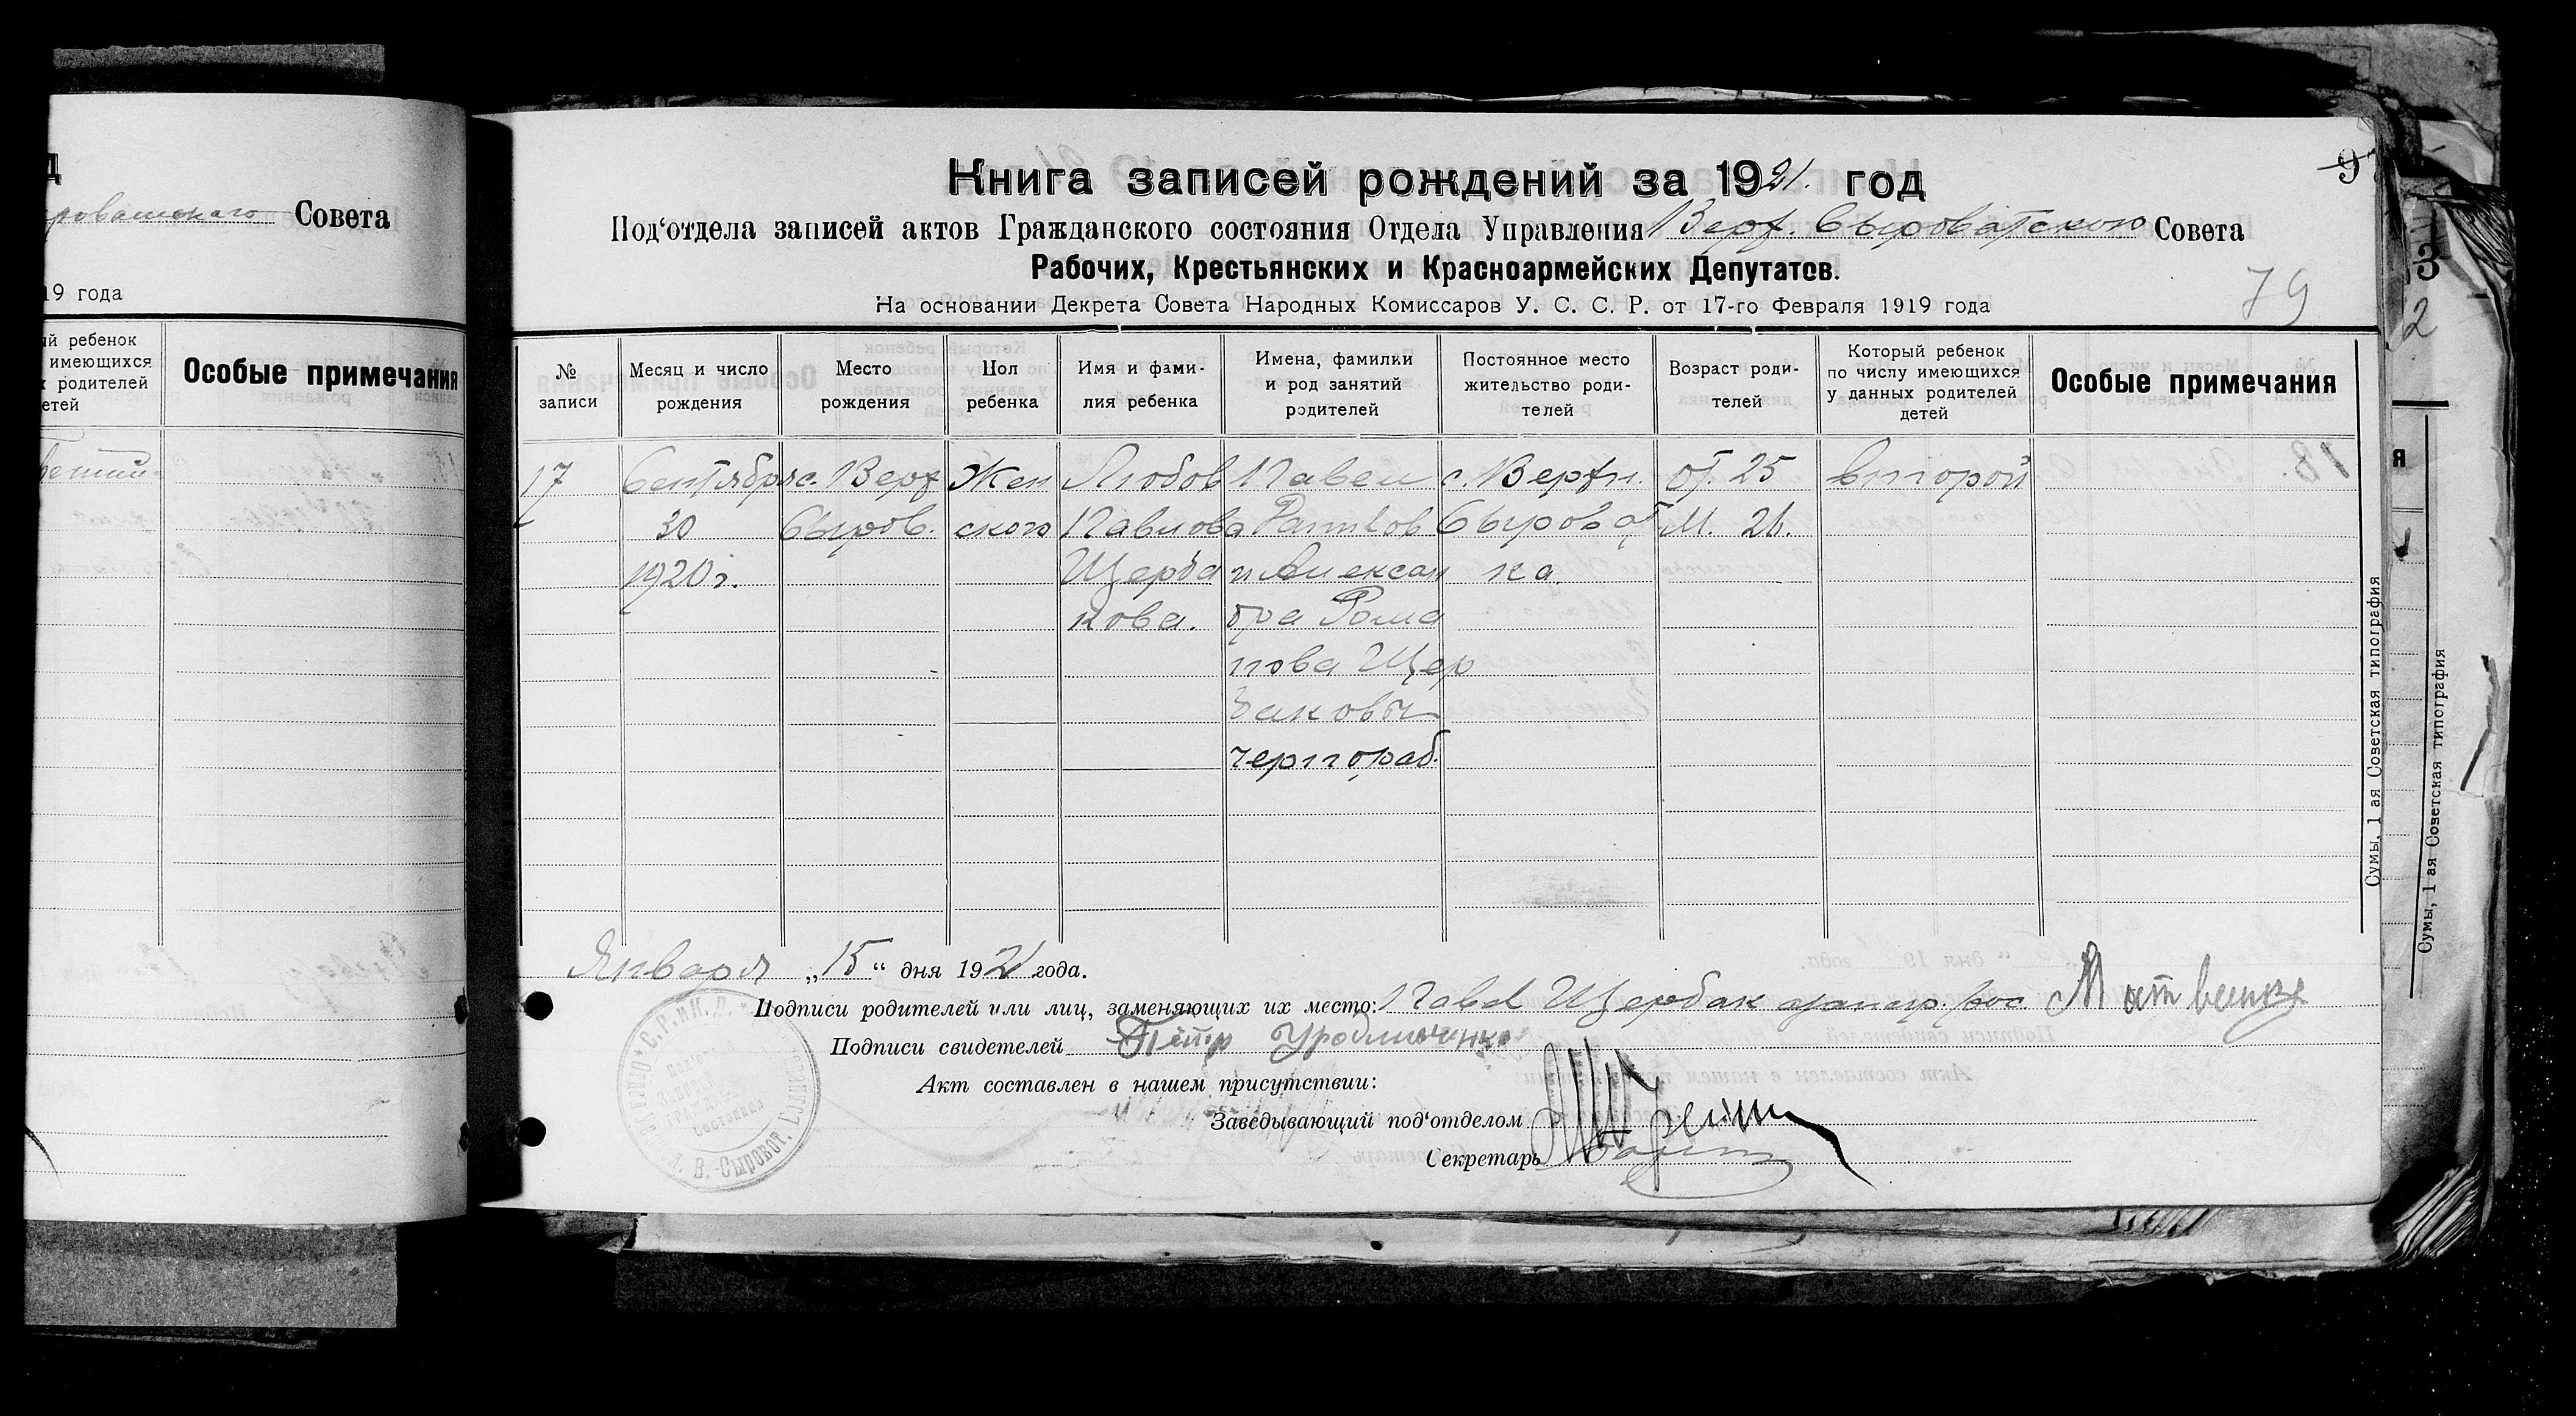 Совета
19 года
ый ребенок
имеющихся
х родителей
етей
Особые примечания
Книга записей рождений за 1921. год
Под‘отдела записей актов Гражданского состояния Отдела Управления Верх. Сыроватского Совета
Рабочих, Крестьянских и Красноармейских Депутатов.
На основании Декрета Совета Народных Комиссаров У. С. С. Р. от 17-го Февраля 1919 года
79
№ записи
Месяц и число рождения
Место рождения
Пол ребенка
Имя и фами-
лия ребенка
Имена, фамилии
и род занятий
родителей
Постоянное место
жительство роди-
телей
Возраст роди-
телей
Который ребенок
по числу имеющихся
у данных родителей
детей
Особые примечания
17
Сентября
30
1920 г.
с. Верх
Сыров.
Жен
ского
Любов
Павлова
Щерба
кова.
Павел
и Алексан
дра Рома
нова Щер
баковы
чернораб.
с. Верхн.
Сыроват
ка.
от. 25
М. 26.
второй
Января „15“ дня 1921 года.
Подписи родителей или лиц, заменяющих их место: Павел Щербак
Подписи свидетелей Петр
Акт составлен в нашем присутствии:
Заведывающий под‘отделом
Секретарь
В.-Сыроват.
Сумы, 1 ая Советская типография
Сумы, 1 ая Советская типография